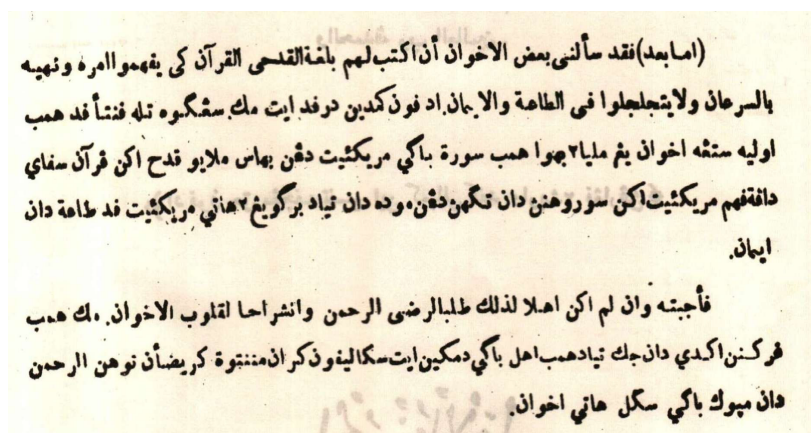 (امابعد) فقد سألنى بعض الاخوان أن اكتب لهم بلغة القدحى القرآن كى يفهموا امره ونهيه
بالسرعان ولا يتجلجلوا فى الطاعة والايمان. اد فون كمدين درفد ايت مك. سڠݢوه تله فنتأ فد همب
اوليه ستڠه اخوان يڠ مليا٢ بهوا همب سورة باݢي مريكئيت دڠن بهاس ملايو قدح اكن قرآن سفاي
دافة فهم مريكئيت اكن سوروهنن دان تݢهن دڠن موده دان تياد برݢويڠ٢ هاتي مريكئيت فد طاعة دان
ايمان.
فأجبته وان لم اكن اهلا لذلك طلبا لرضى الرحمن وانشراحا لقلوب الاخوان. مك همب
فركنن اكندي دان جك تياد همب اهل باݢي دمكين ايت سكاليفون كران مننتوة كريضأن توهن الرحمن
دان مبوك باݢي سݢل هاتي اخوان.